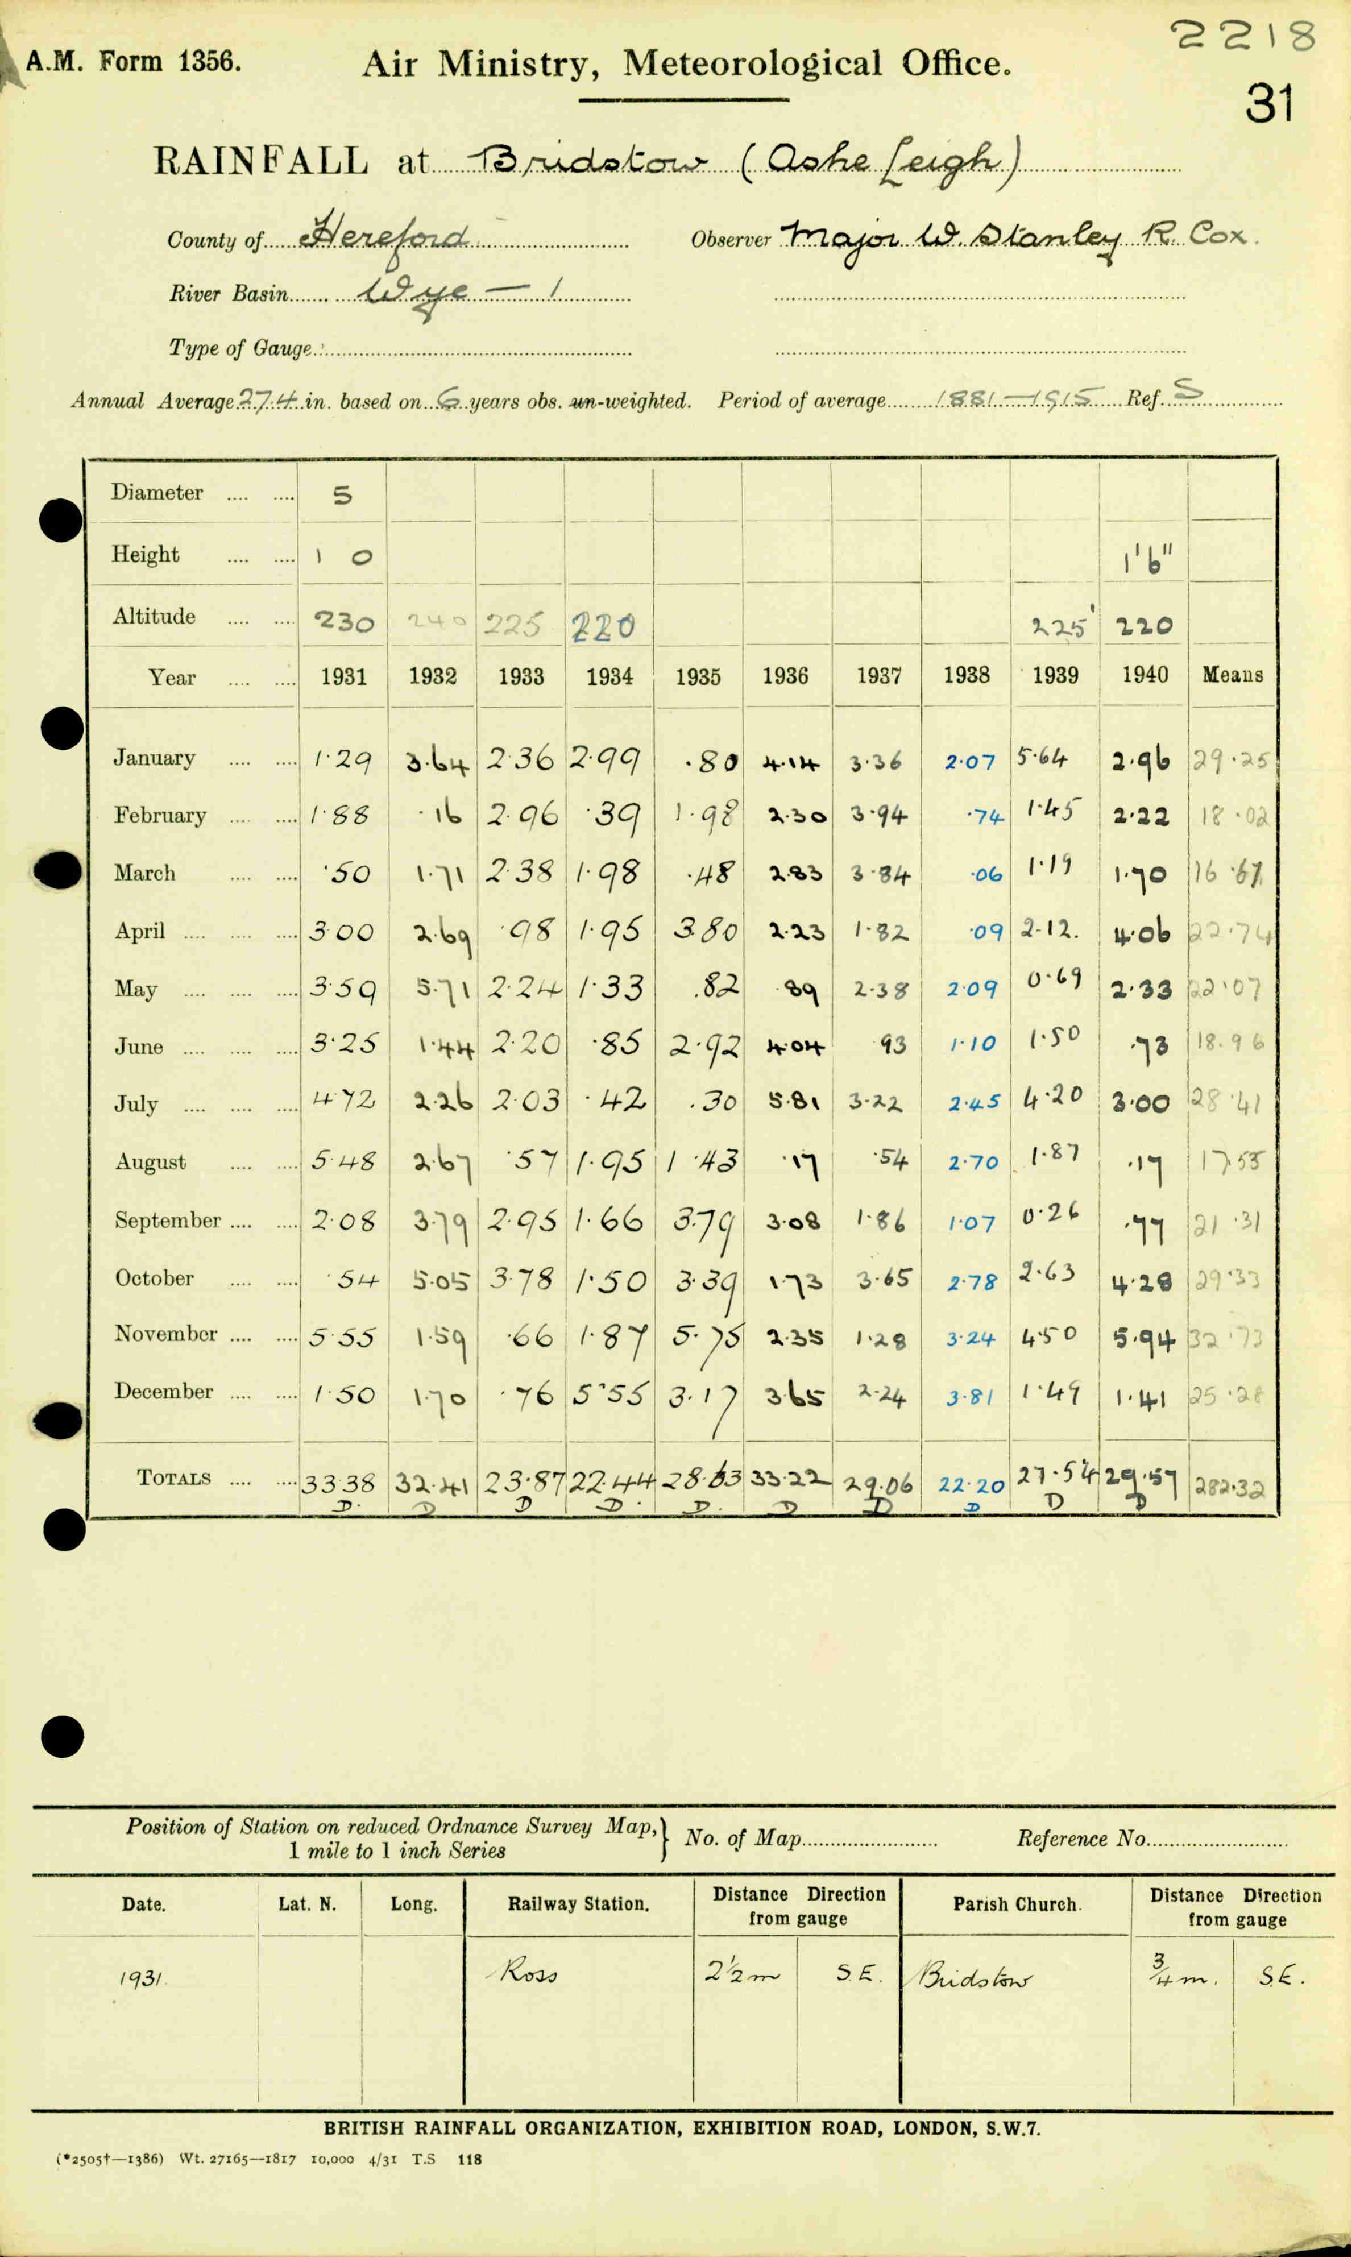 2218
A.M. Form 1356.
Air Ministry, Meteorological Office.
31
RAINFALL at Bridstow (Ashe Leigh)
County of Hereford Observer Major W. Stanley R. Cox.
River Basin Wye — 1
Type of Gauge
Annual Average 27.4 in. based on 6 years obs. un-weighted. Period of average 1881—1915 Ref. S
Diameter 5
Height 1 0 1'6"
Altitude 230 240 225 220 225' 220
Year 1931 1932 1933 1934 1935 1936 1937 1938 1939 1940 Means
January 1.29 3.64 2.36 2.99 .80 4.14 3.36 2.07 5.64 2.96 29.25
February 1.88 .16 2.96 .39 1.98 2.30 3.94 .74 1.45 2.22 18.02
March .50 1.71 2.38 1.98 .48 2.83 3.84 .06 1.19 1.70 16.67
April 3.00 2.69 .98 1.95 3.80 2.23 1.82 .09 2.12. 4.06 22.74
May 3.59 5.71 2.24 1.33 .82 .89 2.38 2.09 0.69 2.33 22.07
June 3.25 1.44 2.20 .85 2.92 4.04 .93 1.10 1.50 .73 18.96
July 4.72 2.26 2.03 .42 .30 5.81 3.22 2.45 4.20 3.00 28.41
August 5.48 2.67 .57 1.95 1.43 .17 .54 2.70 1.87 .17 17.55
September 2.08 3.79 2.95 1.66 3.79 3.08 1.86 1.07 0.26 .77 21.31
October .54 5.05 3.78 1.50 3.39 1.73 3.65 2.78 2.63 4.28 29.33
November 5.55 1.59 .66 1.87 5.75 2.35 1.28 3.24 4.50 5.94 32.73
December 1.50 1.70 .76 5.55 3.17 3.65 2.24 3.81 1.49 1.41 25.28
TOTALS 33.38 32.41 23.87 22.44 28.63 33.22 29.06 22.20 27.54 29.57 282.32
D. D D D. D. D D D D D
Position of Station on reduced Ordnance Survey Map,} No. of Map Reference No.
1 mile to 1 inch Series
Date. Lat. N. Long. Railway Station. Distance Direction from gauge Parish Church. Distance Direction from gauge
1931. Ross 2½ m S.E. Bridstow ¾ m. S.E.
BRITISH RAINFALL ORGANIZATION, EXHIBITION ROAD, LONDON, S.W.7.
(*2505†—1386) Wt. 27165—1817 10,000 4/31 T.S 118